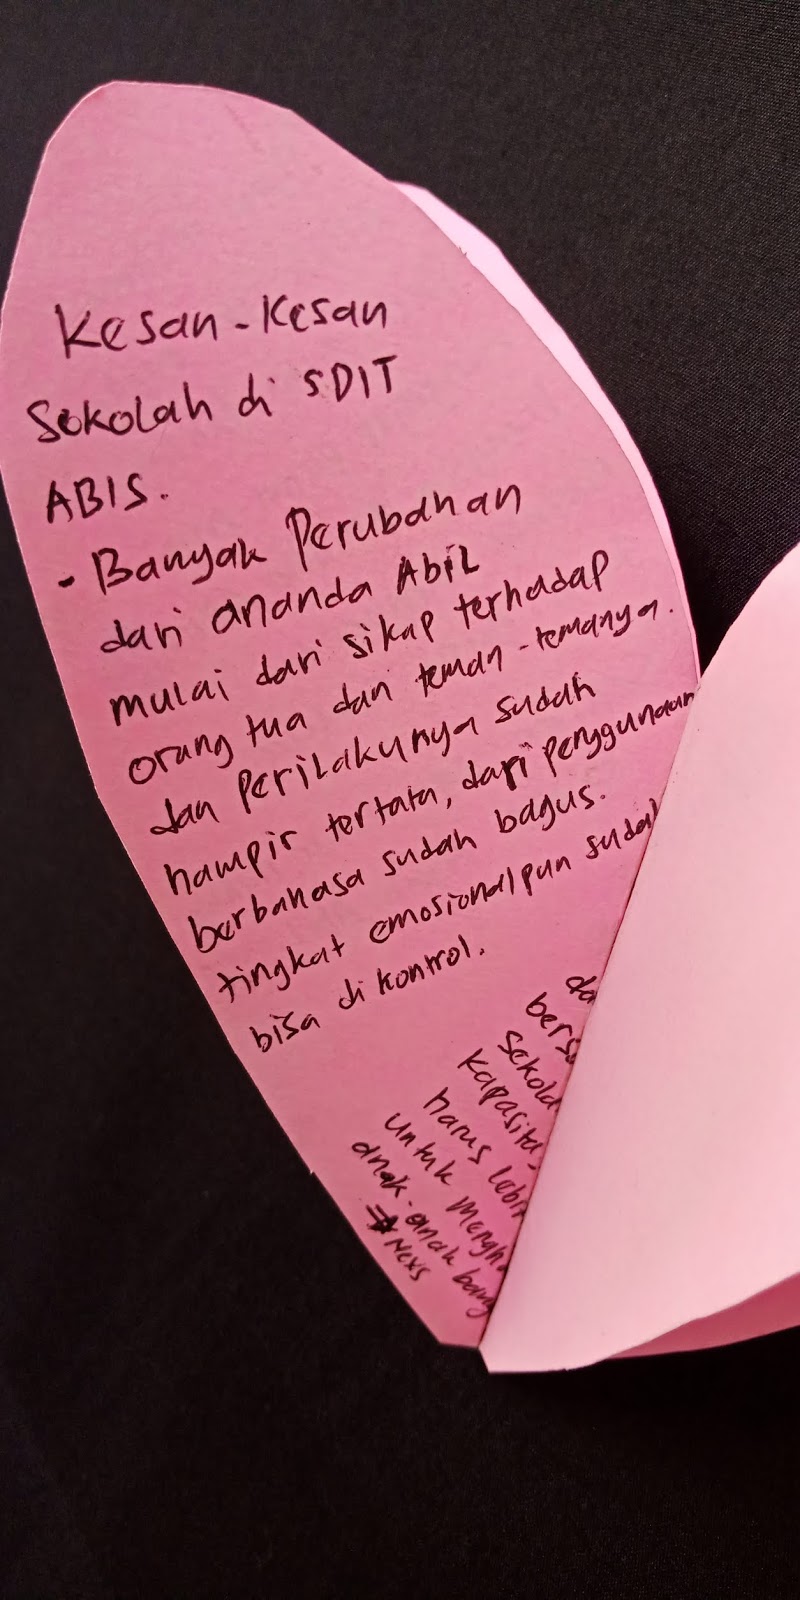 Kesan-Kesan
Sekolah di SDIT
ABIS.
- Banyak Perubahan
dari ananda AbiL
mulai dari sikap terhadap
orang tua dan teman-temanya.
dan Perilakunya sudah
hampir tertata, dari penggunaan
berbahasa sudah bagus.
tingkat emosional pun sudah
bisa di kontrol.
harus
untuk
anak-anak